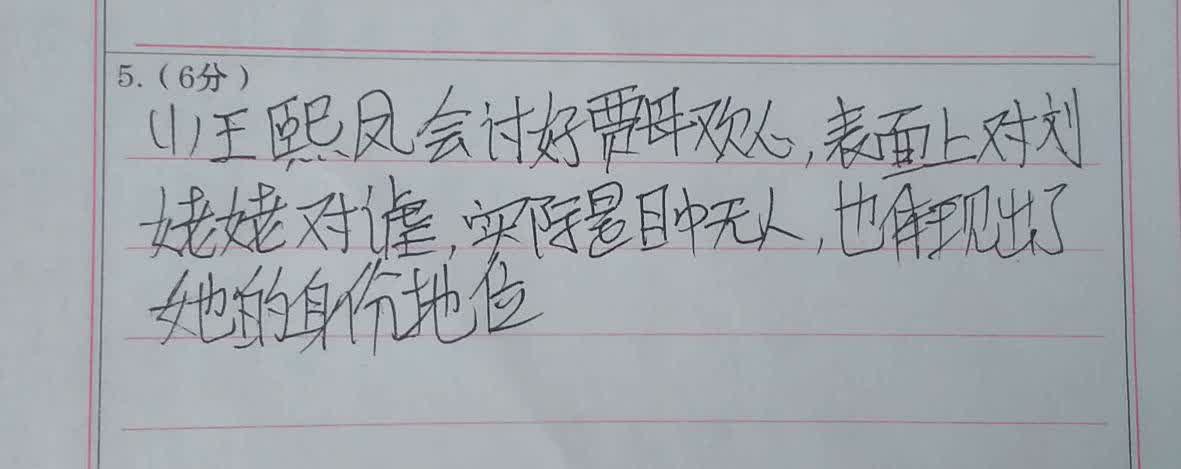 5.（6分）
(1)王熙凤会讨好贾母欢心,表面上对刘
姥姥对谑,实际是目中无人,也体现出了
她的身份地位